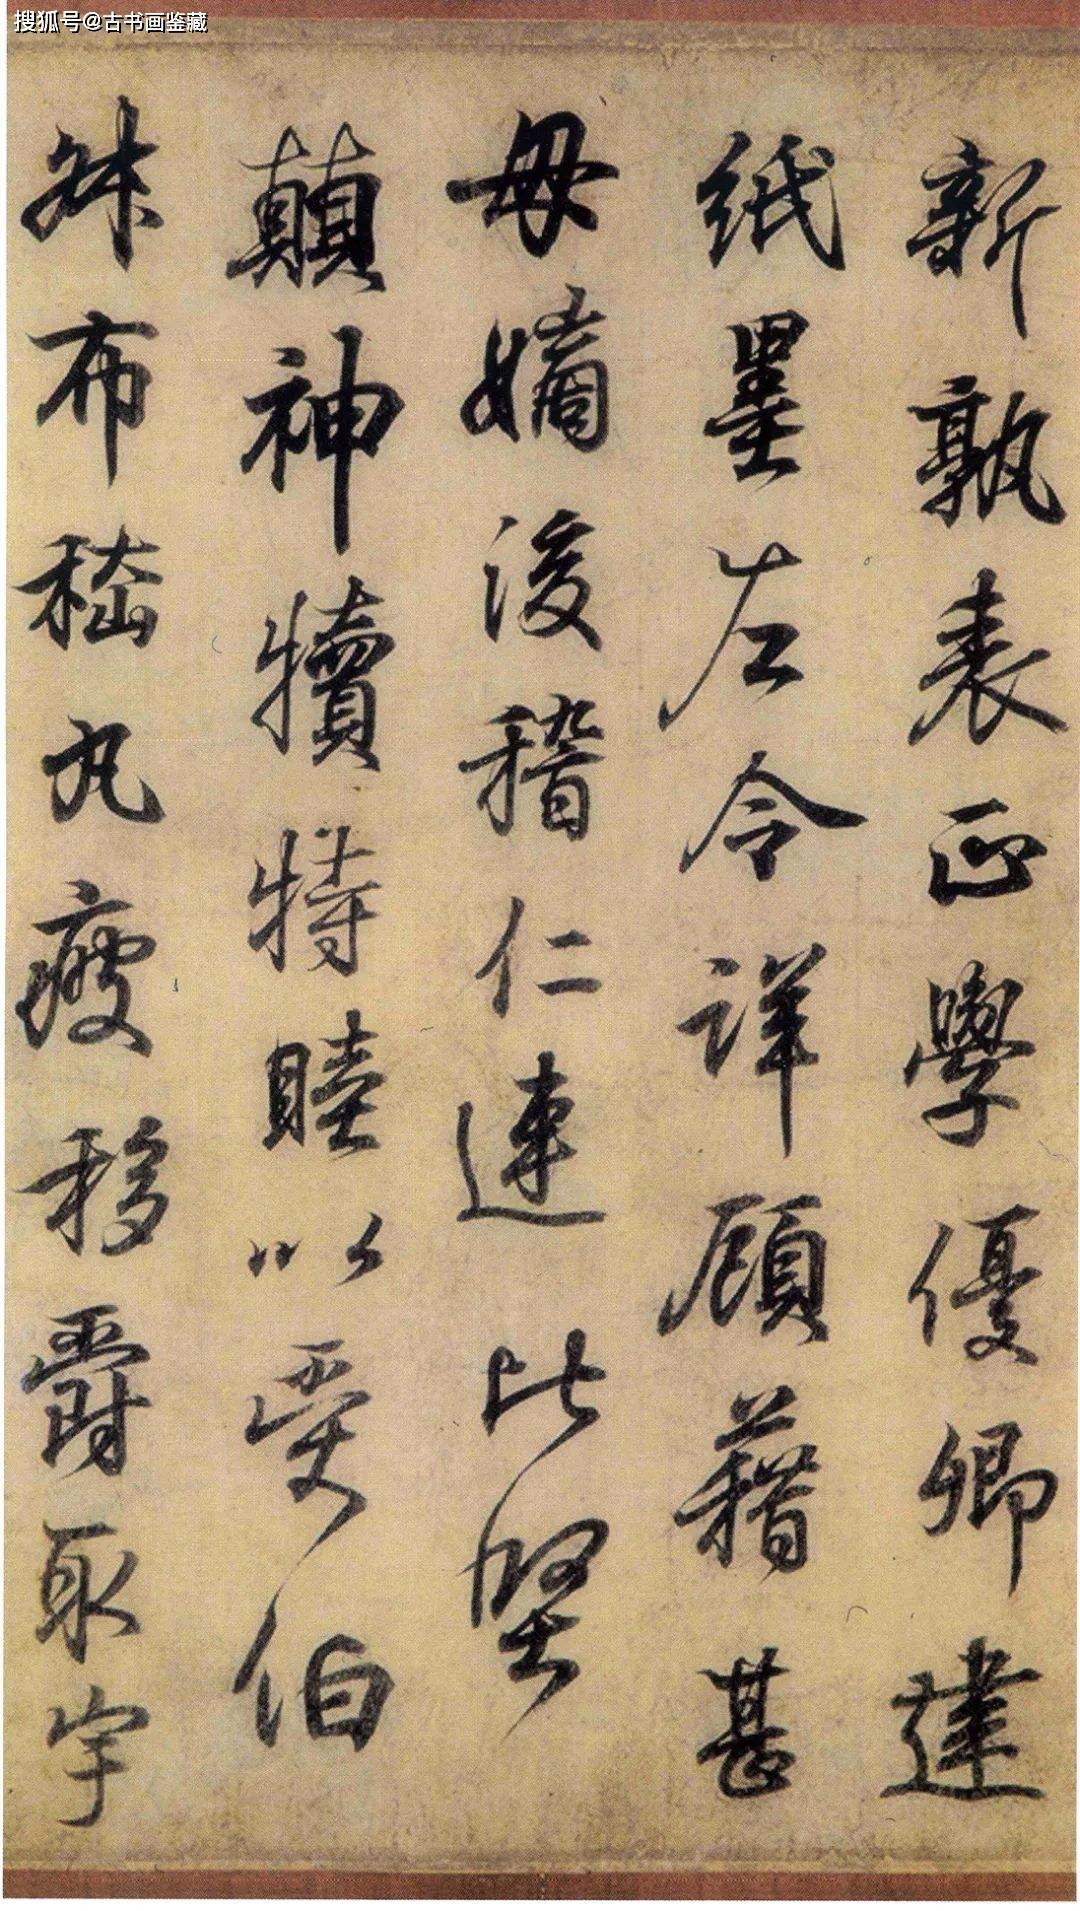 搜狐号@古书画鉴藏
新孰表正學優卿達
紙墨左令詳顧藉甚
母嫡後稽仁連比堅
顛神犢特睦以受伯
叔布嵇丸疲移爵取宇